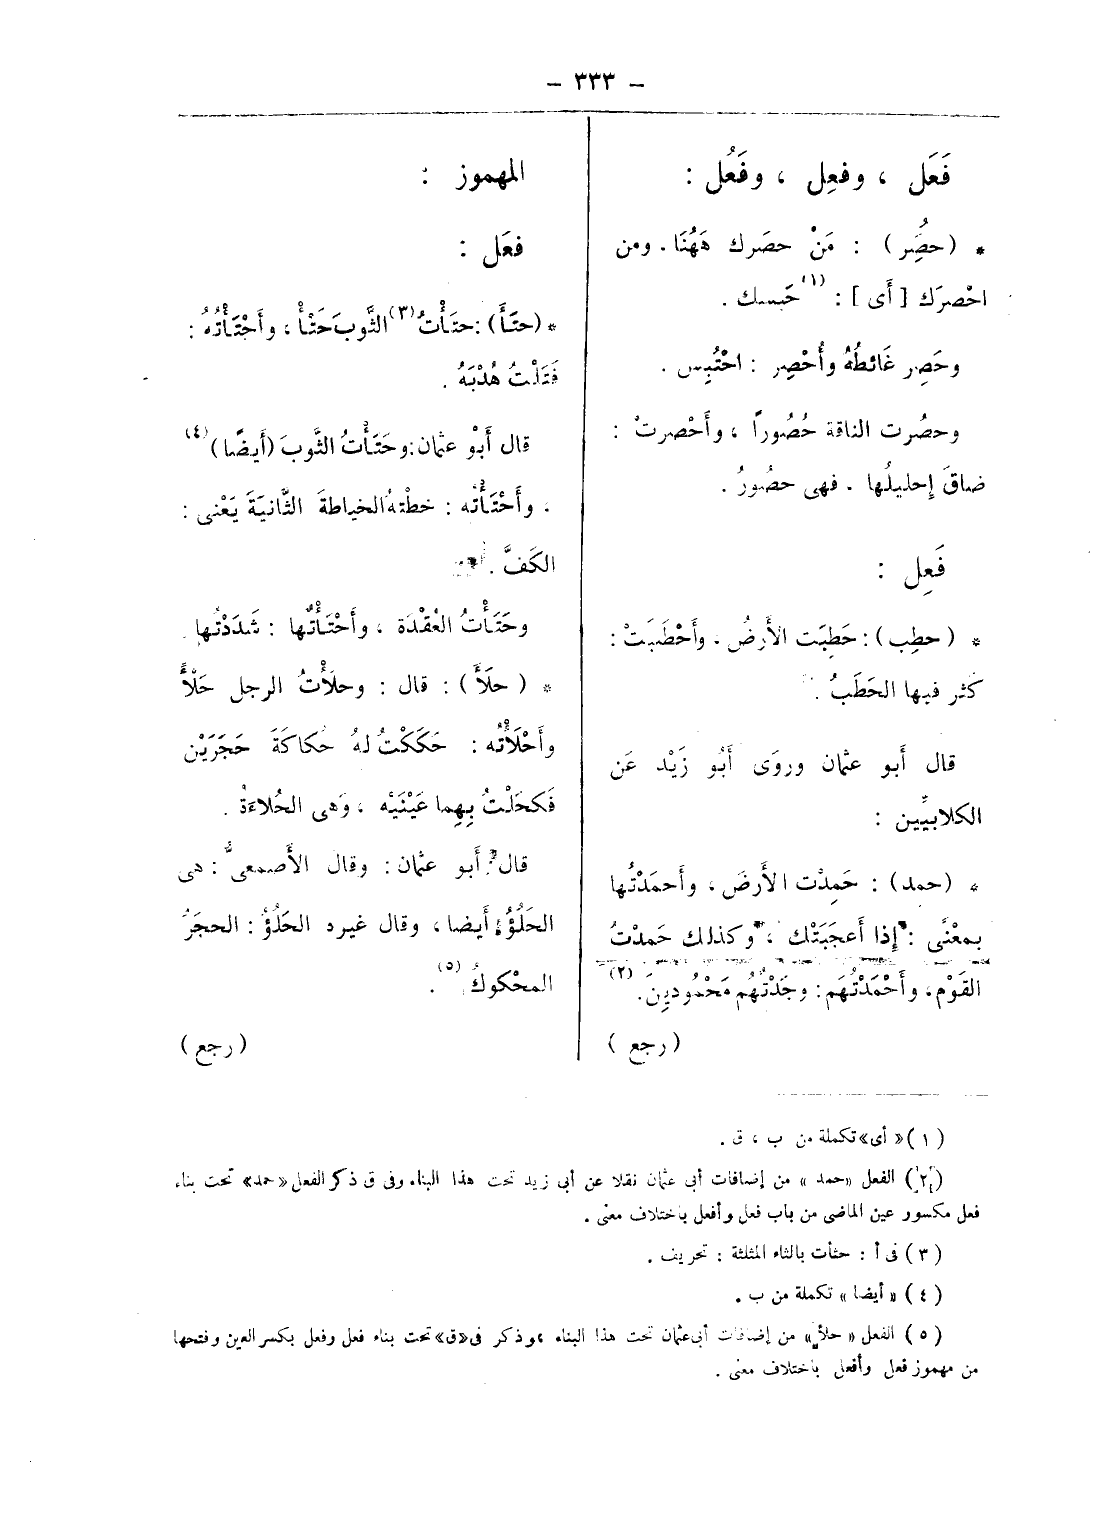 – ٣٣٣ –
فَعَل ، وفعِل ، وفَعُل :
* (حصُِر) : مَنْ حصَرك هَهُنَا . ومن
احْصرَك [ أَى ] : (١) حَبسك .
وحَصِر غَائطُهُ وأُحْصِر : احْتُبِس .
وحصُرت الناقة حُصُوراً ، وأَحْصرتْ :
ضاقَ إِحليلُها . فهى حصُورُ .
فَعِل :
* ( حطِب ) : حَطِبَت الأَرضُ ، وأَحْطَبَتْ :
كثر فيها الحَطَبُ .
قال أَبو عثمان وروَى أَبُو زَيْد عَن
الكلابيِّين :
* (حمد) : حَمِدْت الأَرضَ ، وأَحمَدْتُها
بمعْنًى : إِذا أَعجَبَتْك ، وكذلك حَمدْتُ
القَوْم ، وأَحْمَدْتُهم : وجَدْتُهُم مَحْمُودِينَ . (٢)
( رجع )
المهموز :
فعَل :
* (حتَأَ) : حتَأْتُ (٣) الثَّوبَ حَتْأً ، وأَحْتَأْتُهُ :
فَتَلْتُ هُدْبَهُ .
قال أَبُو عثمان : وحَتَأْتُ الثَّوبَ (أَيضًا) (٤)
، وأَحْتَأْتُه : خطْتهُ الخياطةَ الثَّانيَةَ يَعْنى :
الكَفَّ .
وحَتَأْتُ العُقْدَة ، وأَحْتَأْتُها : شَدَدْتُها .
* ( حلَأَ ) : قال : وحلَأْتُ الرجل حَلْأً
وأَحْلَأْتُه : حَكَكْتُ لهُ حكاكَةَ حَجَرَيْن
فَكحَلْتُ بِهِما عَيْنَيْه ، وَهى الحُلاءَةُ .
قال أَبو عثمان : وقال الأَصمعىُّ : هى
الحَلُؤُ أَيضا ، وقال غيره الحَلُؤُ : الحجَرُ
المحْكوكُ (٥) .
( رجع )
(١) « أى » تكملة من ب ، ق .
(٢) الفعل «حمد » من إضافات أبى عثمان نقلا عن أبى زيد تحت هذا البناء. وفى ق ذكر الفعل «حمد» تحت بناء
فعل مكسور عين الماضى من باب فعل وأفعل باختلاف معنى .
(٣) فى أ : حثأت بالثاء المثلثة : تحريف .
(٤) « أيضا » تكملة من ب .
(٥) الفعل « حلأ » من إضافات أبى عثمان تحت هذا البناء ، وذكر فى «ق» تحت بناء فعل وفعل بكسر العين وفتحها
من مهموز فعل وأفعل باختلاف معنى .